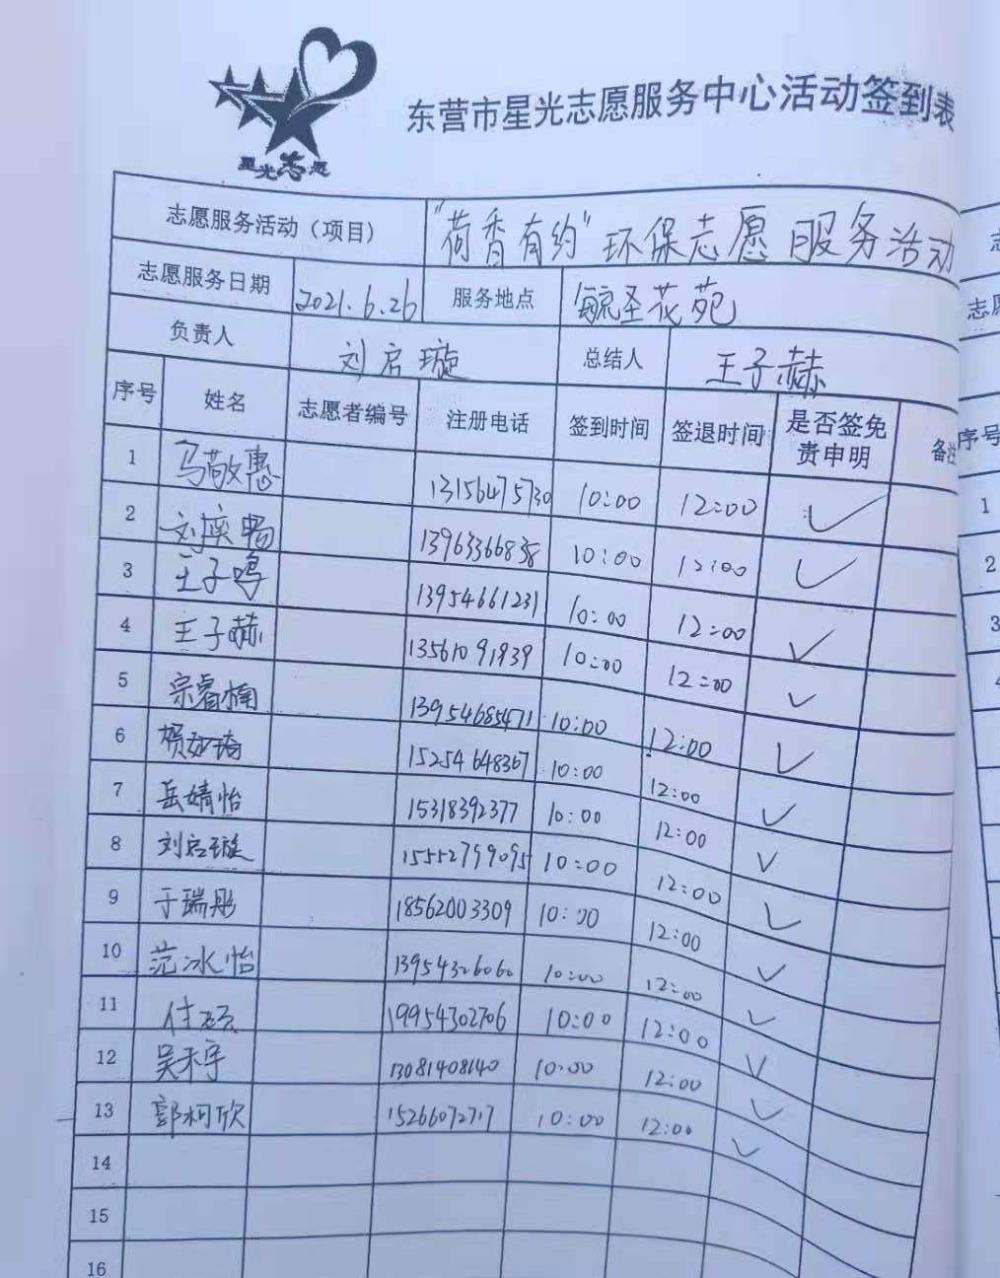 星光志愿
东营市星光志愿服务中心活动签到表
志愿服务活动（项目） "荷香有约"环保志愿服务活动
志愿服务日期 2021.6.26 服务地点 毓圣花苑
负责人 刘启璇 总结人 王子赫
序号 姓名 志愿者编号 注册电话 签到时间 签退时间 是否签免责申明 备注
1 马敬惠 13156475730 10:00 12:00 ✓
2 刘奕畅 13963366838 10:00 12:00 ✓
3 王子鸣 13954661231 10:00 12:00 ✓
4 王子赫 13561091939 10:00 12:00 ✓
5 宗睿楠 13954685471 10:00 12:00 ✓
6 15254648367 10:00 12:00 ✓
7 岳婧怡 15318392377 10:00 12:00 ✓
8 刘启璇 15552799095 10:00 12:00 ✓
9 于瑞彤 18562003309 10:00 12:00 ✓
10 范冰怡 13954326060 10:00 12:00 ✓
11 19954302706 10:00 12:00 ✓
12 吴禾宇 13081408140 10:00 12:00 ✓
13 郭柯欣 15266072717 10:00 12:00 ✓
14
15
16
志
志愿
序号
1
2
3